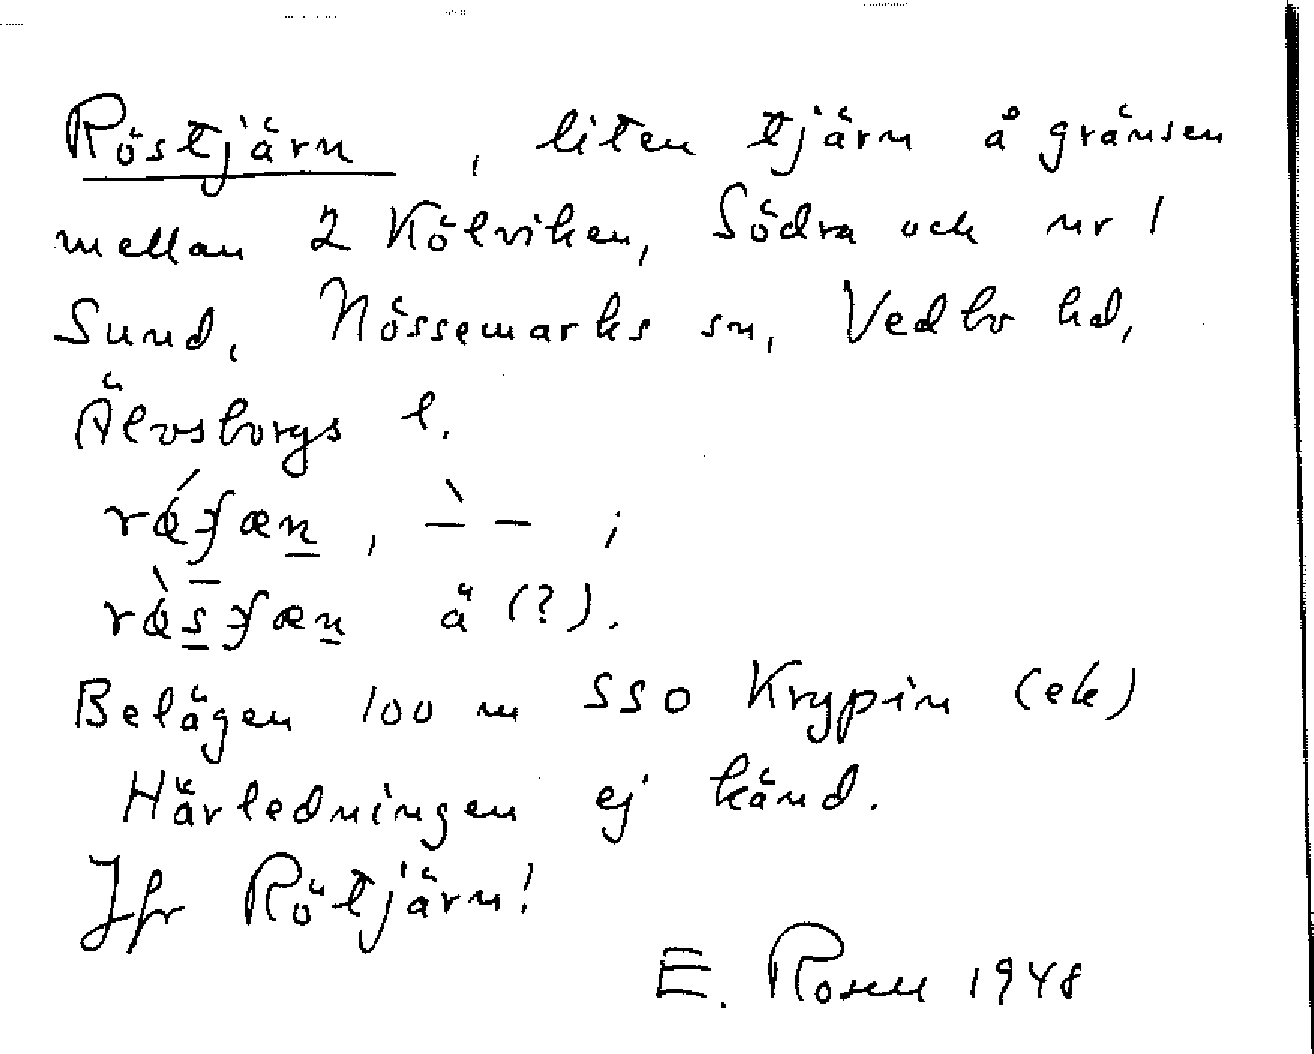 Röstjärn, liten tjärn å gränsen
mellan 2 Kölviken, Södra och nr 1
Sund, Nössemarks sn, Vedbo hd,
Älvsborgs l.
ä (?).
Belägen 100 m SSO Krypin (ek)
Härledningen ej känd.
Jfr Rötjärn!
E. Rosell 1948